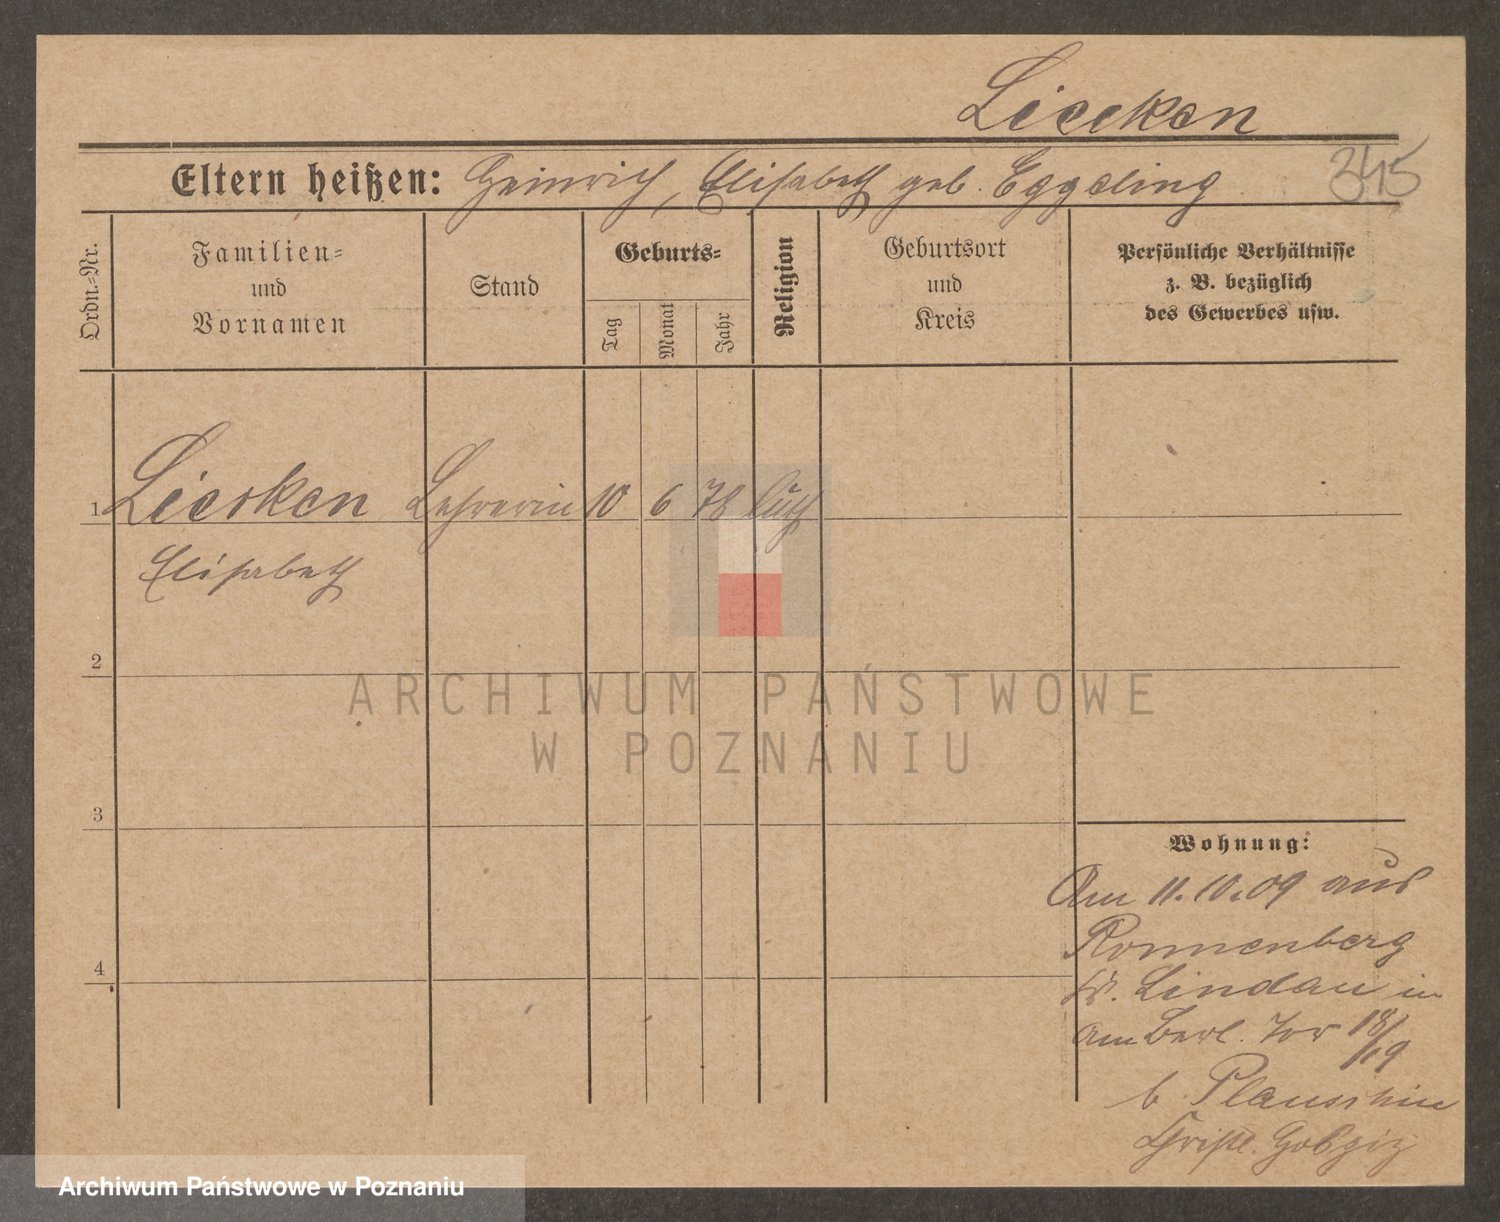 Liecken
Eltern heißen: Heinrich, Elisabeth geb. Eggeling
345
Ordn.=Nr.
Familien=
und
Vornamen
Stand
Geburts=
Tag
Monat
Jahr
Religion
Geburtsort
und
Kreis
Persönliche Verhältnisse
z. B. bezüglich
des Gewerbes usw.
1 Liecken Lehrerin 10 6 78 luth
Elisabeth
2
ARCHIWUM PAŃSTWOWE
W POZNANIU
3
Wohnung:
Am 11.10.09 aus
Ronnenberg
Kr. Linden in
am Berl. Tor 18/19
b.
4
Archiwum Państwowe w Poznaniu